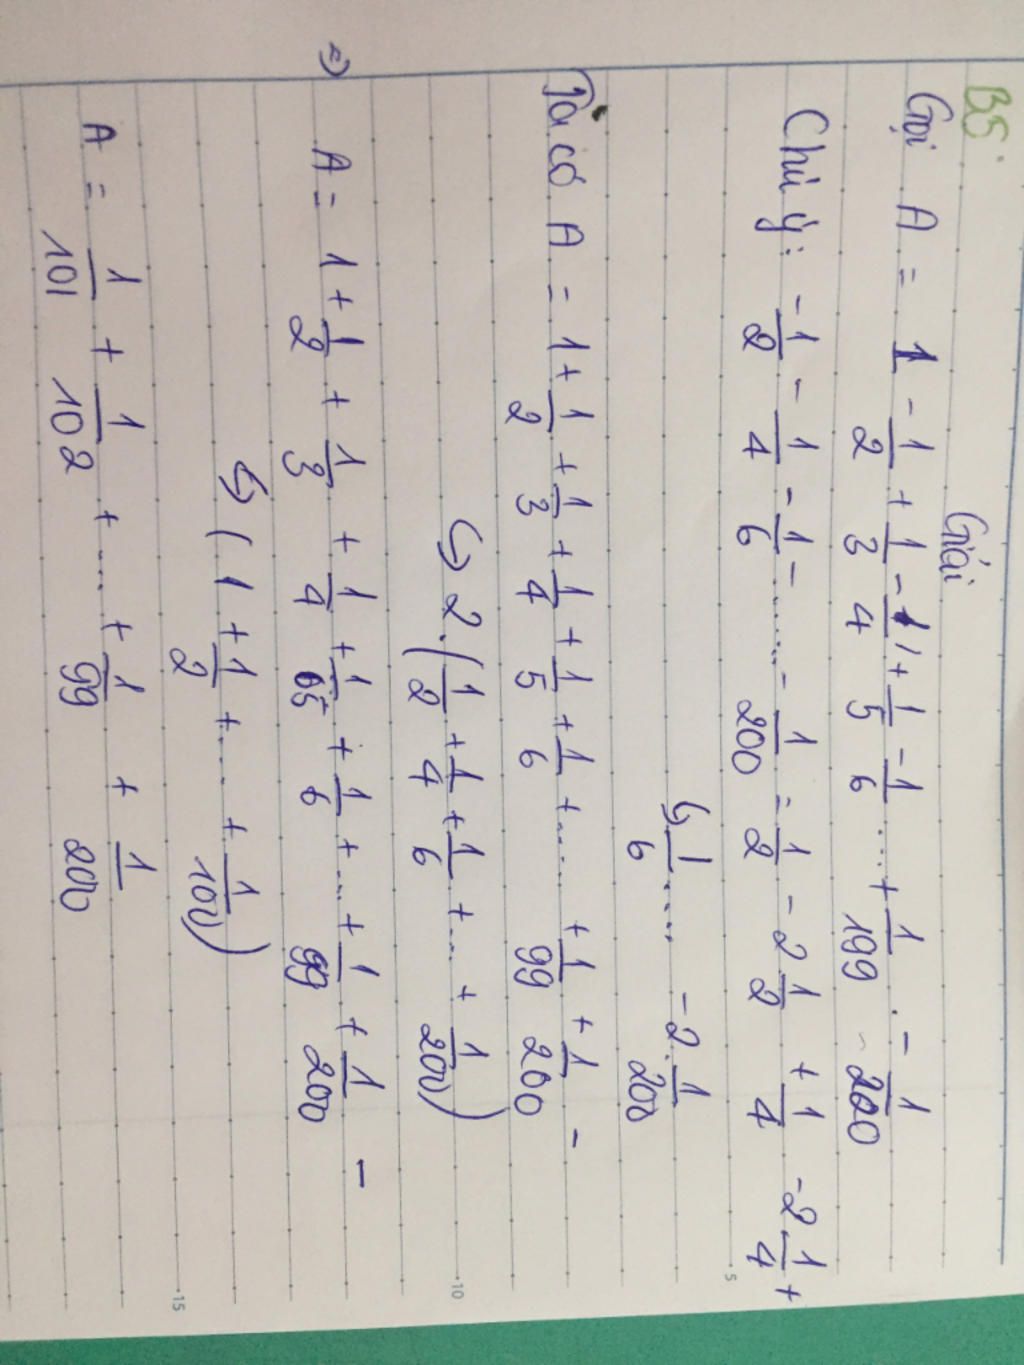 B5:
Giải
Gọi A = 1 - 1/2 + 1/3 - 1/4 + 1/5 - 1/6 ... + 1/199 - 1/200
Chú ý: - 1/2 - 1/4 - 1/6 - ..... - 1/200 = 1/2 - 2 1/2 + 1/4 - 2 1/4 +
↪ 1/6 ..... - 2 . 1/200
Ta có A = 1 + 1/2 + 1/3 + 1/4 + 1/5 + 1/6 + ..... + 1/99 + 1/200 -
↪ 2 . ( 1/2 + 1/4 + 1/6 + ... + 1/200 )
=) A = 1 + 1/2 + 1/3 + 1/4 + 1/5 + 1/6 + ... + 1/99 + 1/200 -
↪ ( 1 + 1/2 + ... + 1/100 )
A = 1/101 + 1/102 + .... + 1/99 + 1/200
5
10
15